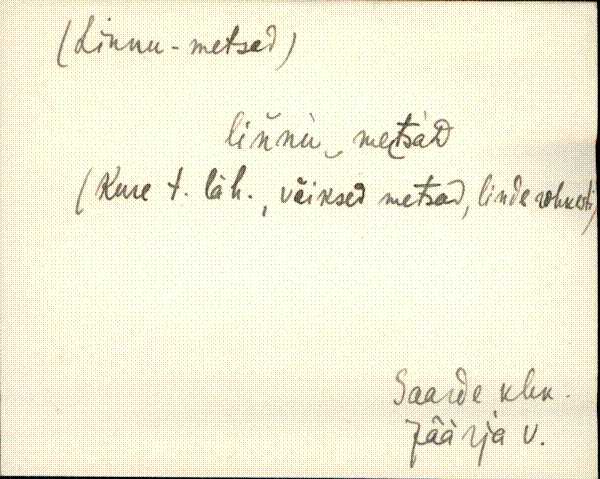 (Linnu-metsed)
liñnù‿metsàD
(Kure t. läh., väiksed metsad, linde rohkesti)
Saarde khk.
Jäärja v.